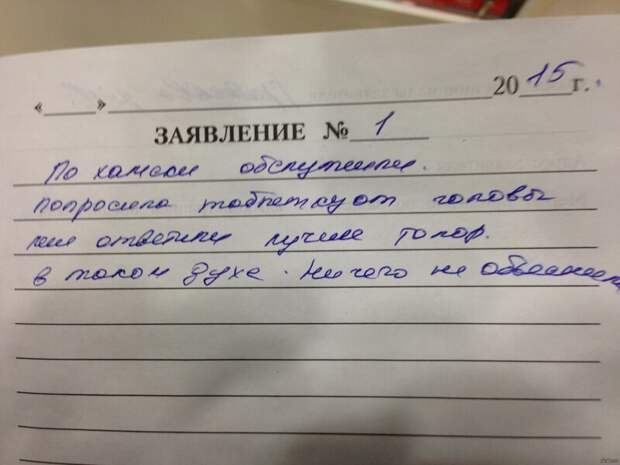 «   »   2015г.
ЗАЯВЛЕНИЕ №1
По хамски обслужили.
попросила таблетку от головы
мне ответили лучше топор.
в таком духе. Ничего не объяснили